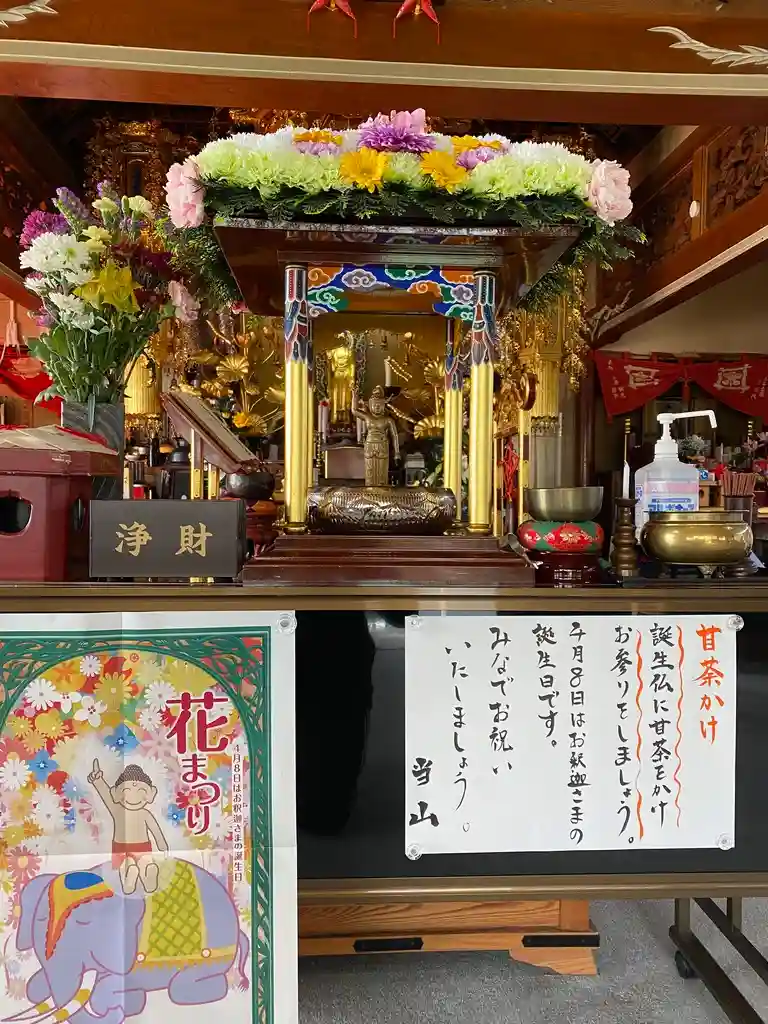 浄財
花まつり
4月8日はお釈迦さまの誕生日
甘茶かけ
誕生仏に甘茶をかけ
お参りをしましょう。
4月8日はお釈迦さまの
誕生日です。
みなでお祝い
いたしましょう。
当山